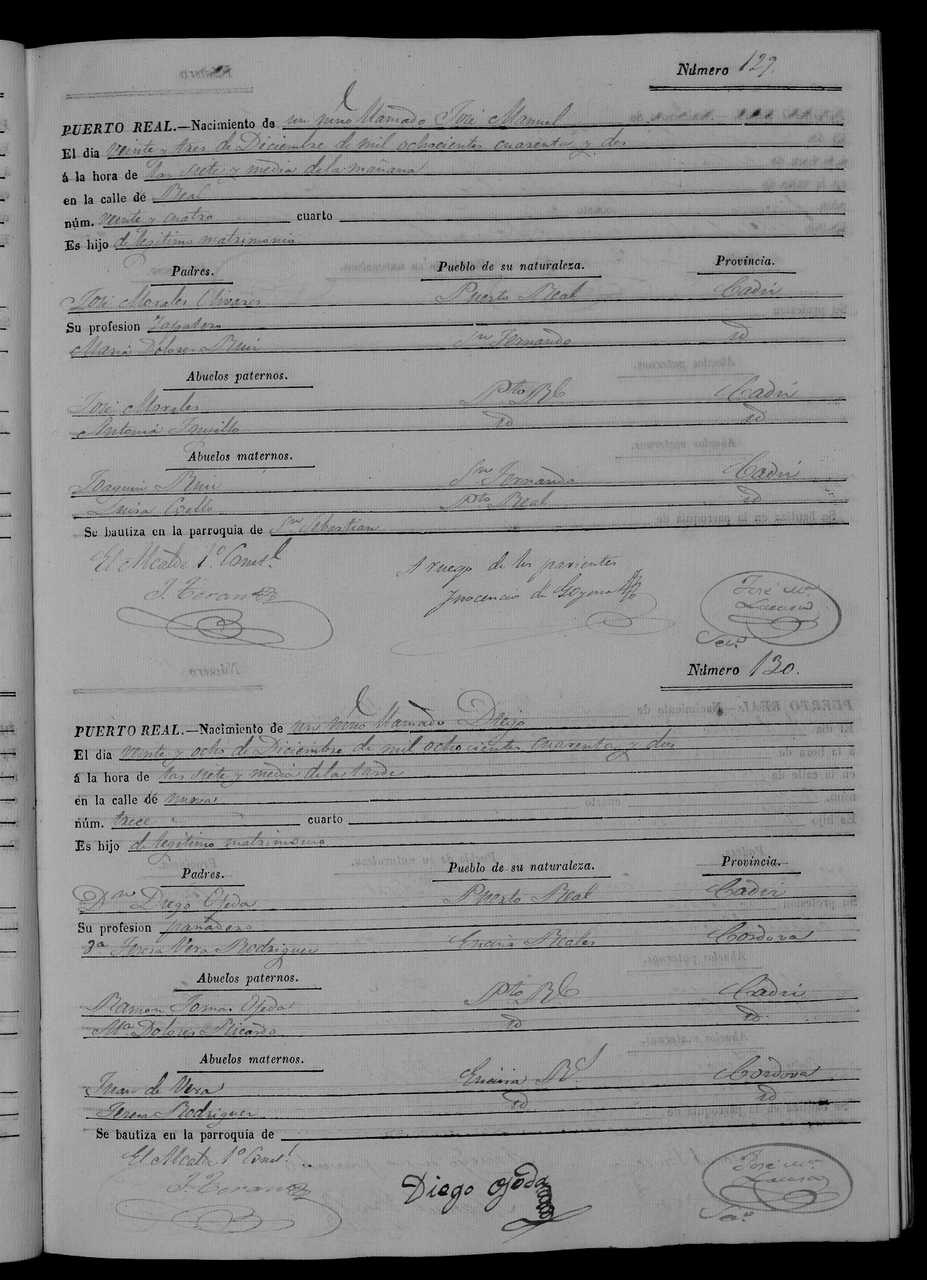 Número 129.
PUERTO REAL.—Nacimiento de un niño llamado José Manuel
El dia veinte y tres de Diciembre de mil ochocientos cuarenta y dos
á la hora de las siete y media de la mañana
en la calle de Real
núm. veinte y cuatro cuarto
Es hijo de legitimo matrimonio
Padres. Pueblo de su naturaleza. Provincia.
José Morales Olivares Puerto Real Cadiz
Su profesion Zapatero
Maria Dolores Ruiz Sn Fernando id
Abuelos paternos.
José Morales Pto Rl Cadiz
Antonia id id
Abuelos maternos.
Joaquin Ruiz Sn Fernando Cadiz
Luisa Coello Pto Real id
Se bautiza en la parroquia de Sn Sebastian
El Alcalde 1º Consl.
J. Teran
A ruego de los parientes
Inocencio de
José Mª
Srio.
Número 130.
PUERTO REAL.—Nacimiento de un niño llamado Diego
El dia veinte y ocho de Diciembre de mil ochocientos cuarenta y dos
á la hora de las siete y media de la tarde
en la calle de nueva
núm. trece cuarto
Es hijo de legitimo matrimonio
Padres. Pueblo de su naturaleza. Provincia.
Dn Diego Ojeda Puerto Real Cadiz
Su profesion panadero
Da Teresa Vera Rodriguez Encina Reales Cordova
Abuelos paternos.
Ramon Tomas Ojeda Pto Rl Cadiz
Mª Dolores Ricardo id id
Abuelos maternos.
Juan de Vera Encina Rl Cordova
Teresa Rodriguez id id
Se bautiza en la parroquia de
El Alcalde 1º Consl.
J. Teran
Diego Ojeda
José Mª
Srio.